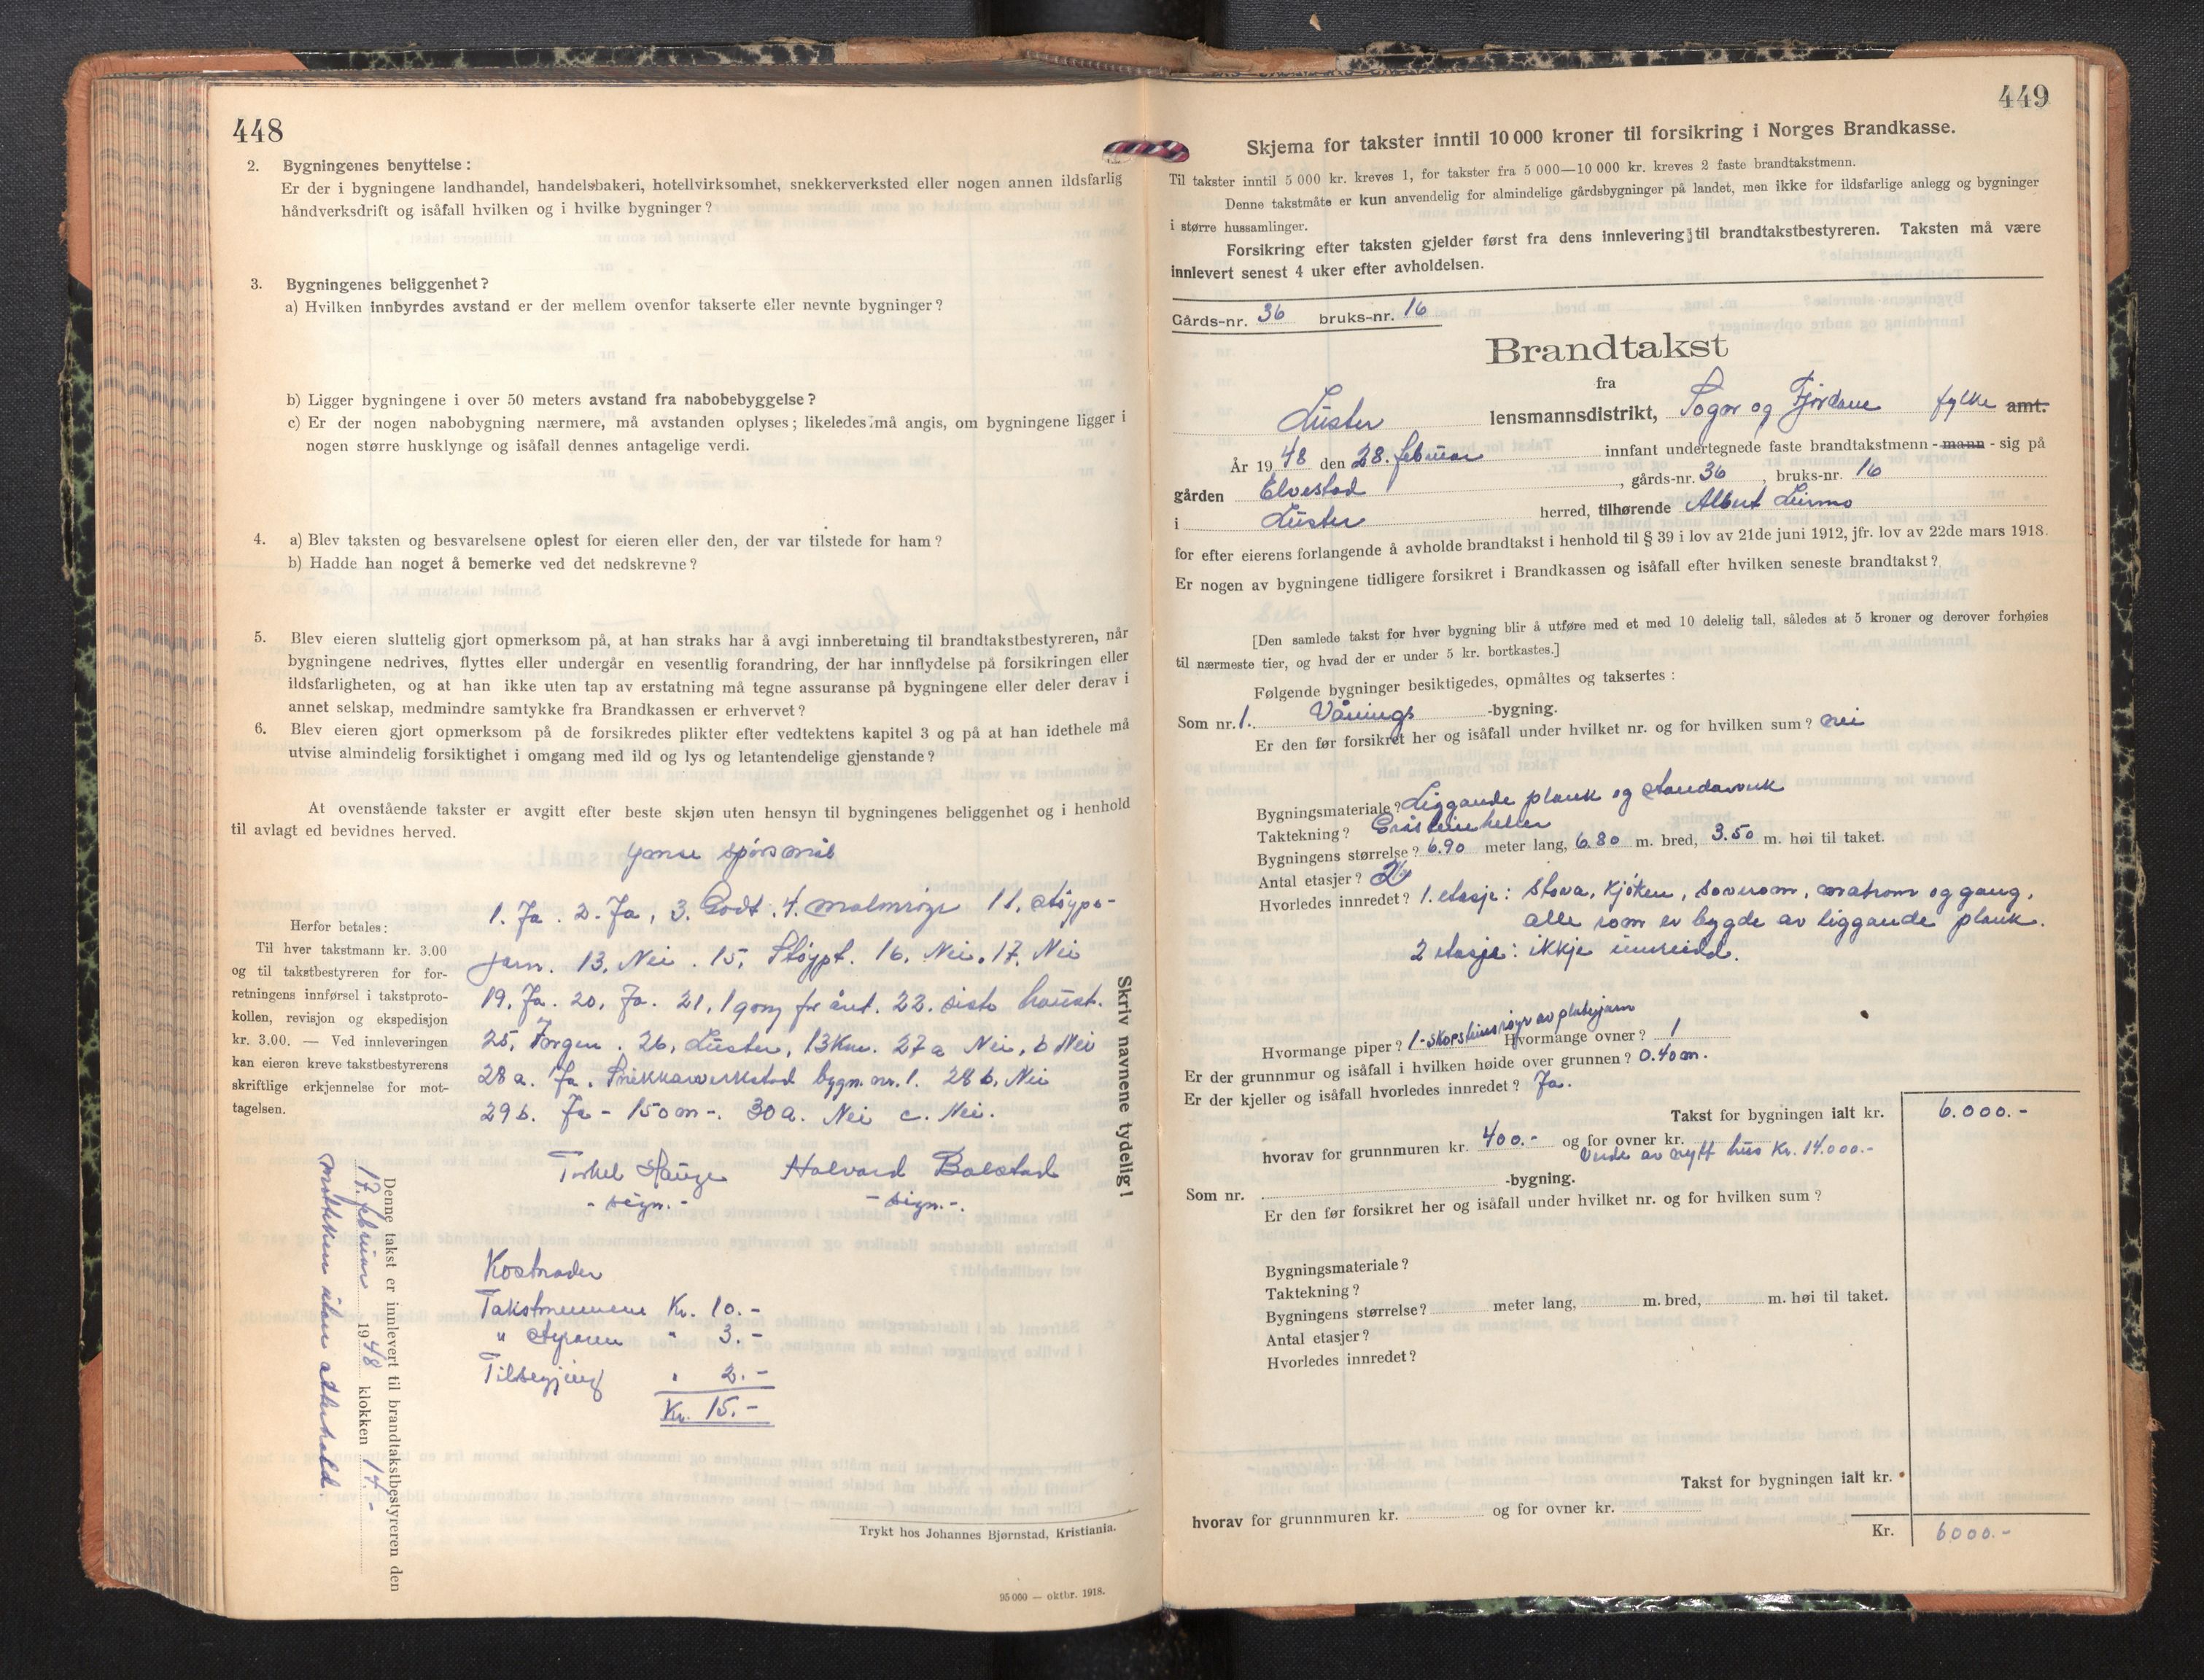 448
2. Bygningenes benyttelse:
Er der i bygningene landhandel, handelsbakeri, hotellvirksomhet, snekkerverksted eller nogen annen ildsfarlig
håndverksdrift og isåfall hvilken og i hvilke bygninger?
3. Bygningenes beliggenhet?
a) Hvilken innbyrdes avstand er der mellem ovenfor takserte eller nevnte bygninger?
b) Ligger bygningene i over 50 meters avstand fra nabobebyggelse?
c) Er der nogen nabobygning nærmere, må avstanden oplyses; likeledes må angis, om bygningene ligger i
nogen større husklynge og isåfall dennes antagelige verdi.
4. a) Blev taksten og besvarelsene oplest for eieren eller den, der var tilstede for ham?
b) Hadde han noget å bemerke ved det nedskrevne?
5. Blev eieren sluttelig gjort opmerksom på, at han straks har å avgi innberetning til brandtakstbestyreren, når
bygningene nedrives, flyttes eller undergår en vesentlig forandring, der har innflydelse på forsikringen eller
ildsfarligheten, og at han ikke uten tap av erstatning må tegne assuranse på bygningene eller deler derav i
annet selskap, medmindre samtykke fra Brandkassen er erhvervet?
6. Blev eieren gjort opmerksom på de forsikredes plikter efter vedtektens kapitel 3 og på at han idethele må
utvise almindelig forsiktighet i omgang med ild og lys og letantendelige gjenstande?
At ovenstående takster er avgitt efter beste skjøn uten hensyn til bygningenes beliggenhet og i henhold
til avlagt ed bevidnes herved.
Ymse spörsmål
1. Ja. 2. Ja, 3. Godt. 4. malmrøyr 11. støype-
jarn. 13. Nei. 15. Støypt. 16. Nei. 17. Nei
19. Ja. 20. Ja. 21. 1 gong for året. 22. siste haust.
25. Torgeir. 26. Luster, 13 Km. 27 a Nei, b Nei
28 a. Ja. Snikkarverkstad bygn. nr. 1. 28 b. Nei
29 b. Ja - 150 m -. 30 a. Nei c. Nei.
Torkel Hauge Halvard Bolstad
- sign. - - sign. -.
Herfor betales:
Til hver takstmann kr. 3.00
og til takstbestyreren for for-
retningens innførsel i takstproto-
kollen, revisjon og ekspedisjon
kr. 3.00. — Ved innleveringen
kan eieren kreve takstbestyrerens
skriftlige erkjennelse for mot-
tagelsen.
Skriv navnene tydelig!
Kostnader
Takstmennene Kr. 10.-
" Styraren " 3.-
Tilsegjing " 2.-
Kr. 15.-
Denne takst er innlevert til brandtakstbestyreren den
17. februar 1948 klokken 14.-
mottken utan atterhald.
Trykt hos Johannes Bjørnstad, Kristiania.
95 000 — oktbr. 1918.
449
Skjema for takster inntil 10 000 kroner til forsikring i Norges Brandkasse.
Til takster inntil 5 000 kr. kreves 1, for takster fra 5 000—10 000 kr. kreves 2 faste brandtakstmenn.
Denne takstmåte er kun anvendelig for almindelige gårdsbygninger på landet, men ikke for ildsfarlige anlegg og bygninger
i større hussamlinger.
Forsikring efter taksten gjelder først fra dens innlevering til brandtakstbestyreren. Taksten må være
innlevert senest 4 uker efter avholdelsen.
Gårds-nr. 36 bruks-nr. 16
Brandtakst
fra
Luster lensmannsdistrikt, Sogn og Fjordane fylke amt.
År 1948 den 28. februar innfant undertegnede faste brandtakstmenn - mann - sig på
gården Elvestad, gårds-nr. 36, bruks-nr. 16
i Luster herred, tilhørende Albert Leirmo
for efter eierens forlangende å avholde brandtakst i henhold til § 39 i lov av 21de juni 1912, jfr. lov av 22de mars 1918.
Er nogen av bygningene tidligere forsikret i Brandkassen og isåfall efter hvilken seneste brandtakst?
[Den samlede takst for hver bygning blir å utføre med et med 10 delelig tall, således at 5 kroner og derover forhøies
til nærmeste tier, og hvad der er under 5 kr. bortkastes.]
Følgende bygninger besiktigedes, opmåltes og taksertes:
Som nr. 1. Vånings -bygning.
Er den før forsikret her og isåfall under hvilket nr. og for hvilken sum? nei
Bygningsmateriale? Liggande plank og standarverk
Taktekning? Gråsteinheller
Bygningens størrelse? 6.90 meter lang, 6.80 m. bred, 3.50 m. høi til taket.
Antal etasjer? 2
Hvorledes innredet? 1. etasje: stova, kjøken, soverom, matrom og gang,
alle rom er bygde av liggande plank.
2 etasje: ikkje innreidd.
Hvormange piper? 1 - skorsteinsrøyr av platejarn Hvormange ovner? 1
Er der grunnmur og isåfall i hvilken høide over grunnen? 0.40 m.
Er der kjeller og isåfall hvorledes innredet? Ja.
Takst for bygningen ialt kr. 6.000.-
hvorav for grunnmuren kr. 400.- og for ovner kr.
Verde av nytt hus Kr. 14.000.-
Som nr. -bygning.
Er den før forsikret her og isåfall under hvilket nr. og for hvilken sum?
Bygningsmateriale?
Taktekning?
Bygningens størrelse? meter lang, m. bred, m. høi til taket.
Antal etasjer?
Hvorledes innredet?
Takst for bygningen ialt kr.
hvorav for grunnmuren kr. og for ovner kr.
Kr. 6000.-